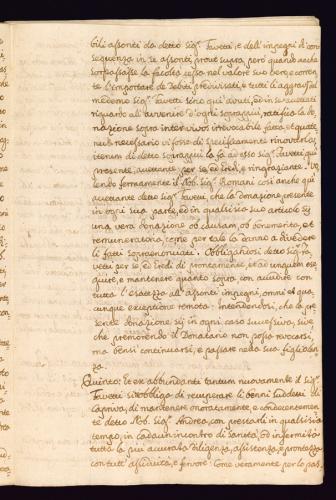 bili assonti da detto Sig.r Favetti, e dell'impegni di con=
seguenza in se assonti prove supra, però quando anche
sorpassasse la facoltà cessa nel valore suo ben corrente
l'importare de Debiti previsati, e tutti li aggravj del
medemo Sig.r Favetti sino qui avuti, ed in se accettati
riguardo all'avvenire d'ogni soprapiù, ratifica la do=
nazione sopra intervivos irrevocabile fatta, et quate=
nus necessario vi fosse di specificamente rinovarla,
iterum di detto soprapiù la fa ad esso Sig.r Favetti qui
presente, accettante per se ed eredi, e ringraziante. Vo=
lendo fermamente il Nob. Sig.r Romani così anche qui
accettante detto Sig.r Favetti, che la donazione presente
in ogni sua parte, ed in qualsisia suo articolo sij
una vera donazione ob causam, ob benemerito, et
remuneratoria, come per tale la danno a divedere
li fatti sopraenonciati. Obbligandosi detto Sig.r Fa=
vetti per se, ed eredi di prontamente, et ad unguem ese=
quire, e mantenere quanto sopra con accudire con
tutta l'esatezza all'assonti impegni, omni et qua=
cunque exceptione remota. Intendendosi, che la pre=
sente donazione sij in ogni caso successiva, sive,
che premorendo il Donatario non possa revocarsi,
ma bensi continuarsi, e passare nella sua figliolan=
za.
Quinto: Et ex abbundanti tantum nuovamente il Sig.r
Favetti si obbliga di recuperare li benni suddetti di
Capriva, di mantenere onoratamente, e condecentemen=
te detto Nob. Sig.r Andrea, con prestarli in qualsisia
tempo, in cadaun incontro di sanità, ed infermità
tutta la più accurata diligenza, assistenza, e prontezza
con tutt'assiduità, e fervore: Come veramente per lo pas=